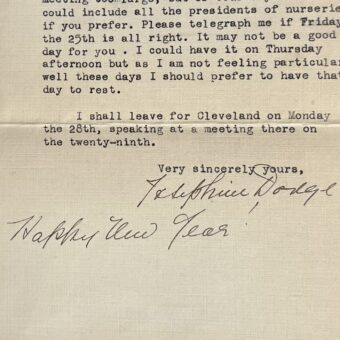 could include all the presidents of nurserie
if you prefer. Please telegraph me if Friday
the 25th is all right. It may not be a good
day for you . I could have it on Thursday
afternoon but as I am not feeling particular
well these days I should prefer to have that
day to rest.
I shall leave for Cleveland on Monday
the 28th, speaking at a meeting there on
the twenty-ninth.
Very sincerely yours,
Josephine Dodge
Happy New Year